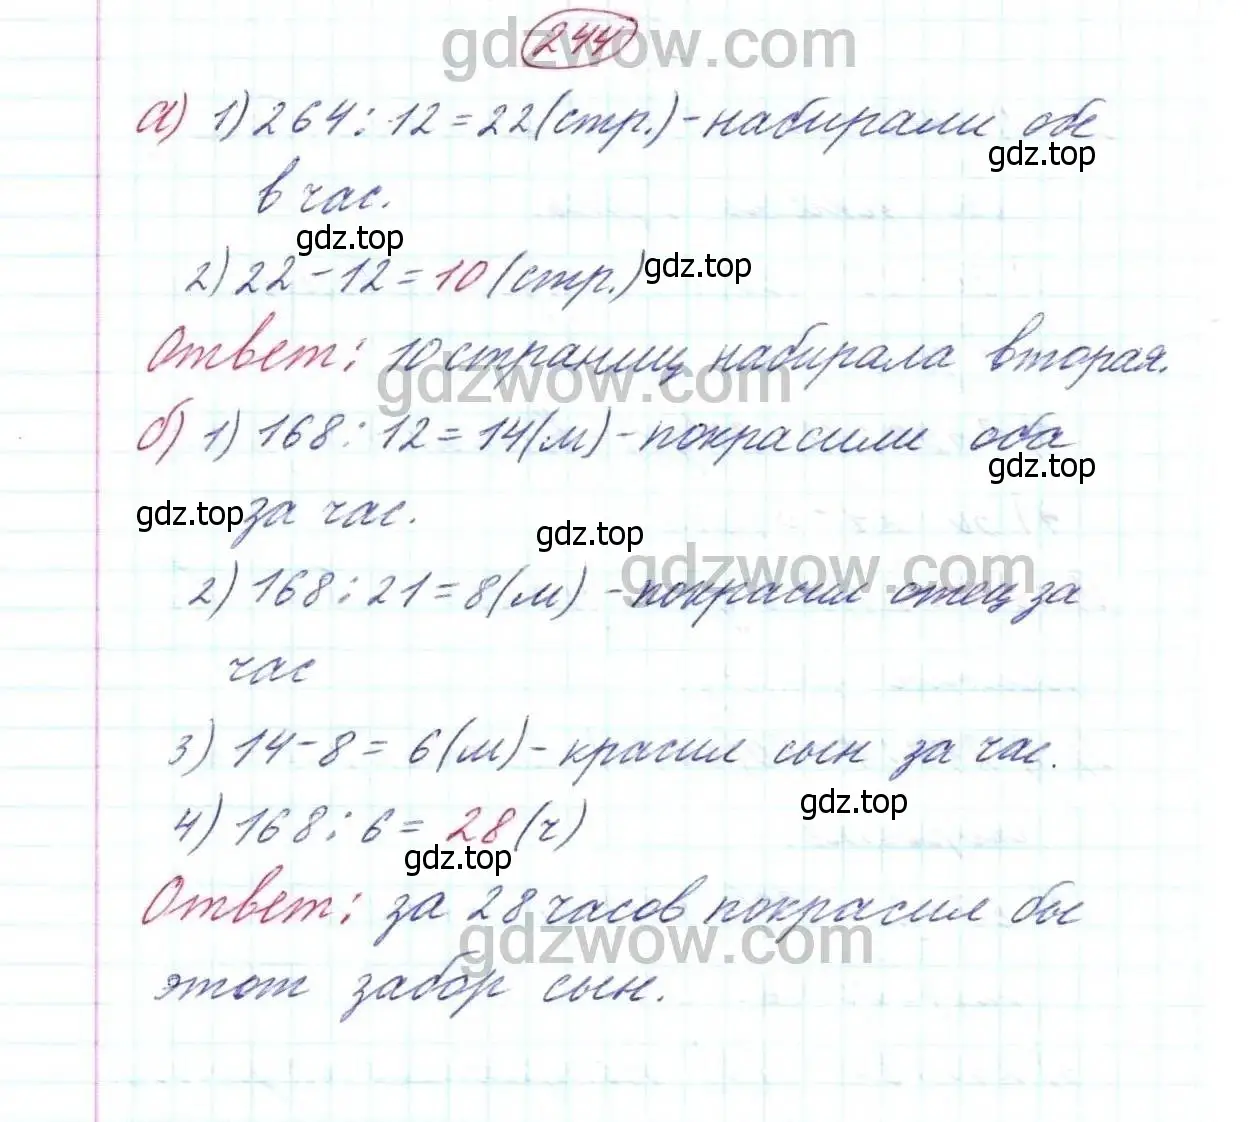 gdzwow.com
244
а) 1) 264 : 12 = 22 (стр.) - набирали обе
gdz.top
в час.
gdz.top
2) 22 - 12 = 10 (стр.)
gdz.top
Ответ: 10 страниц набирала вторая.
gdzwow.com
б) 1) 168 : 12 = 14 (м) - покрасили оба
gdz.top
gdz.top
за час.
gdz.top
gdzwow.com
2) 168 : 21 = 8 (м) - покрасил отец за
час
3) 14 - 8 = 6 (м) - красил сын за час.
gdz.top
4) 168 : 6 = 28 (ч)
gdz.top
Ответ: за 28 часов покрасил бы
gdzwow.com
этот забор сын.